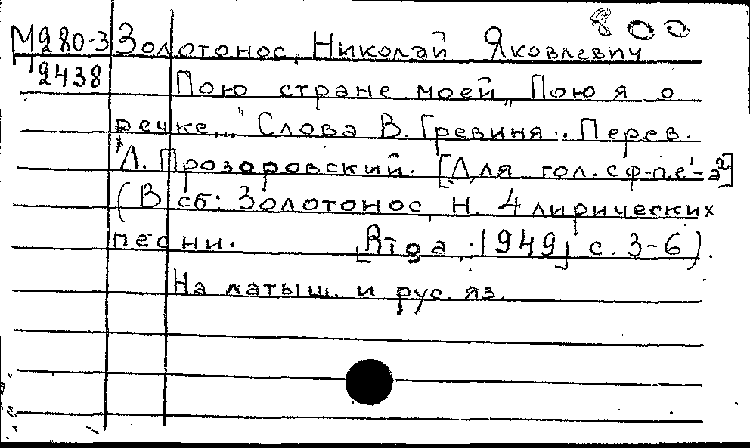 800
М280-3 Золотонос, Николай Яковлевич
2438 Пою стране моей „Пою я о
речке..." Слова В. Гревиня. Перев.
Л. Прозоровский. [Для гол. с ф-п. е'-а²]
(В сб: Золотонос, Н. 4 лирических
песни. [Рига, 1949] с. 3-6).
На латыш. и рус. яз.